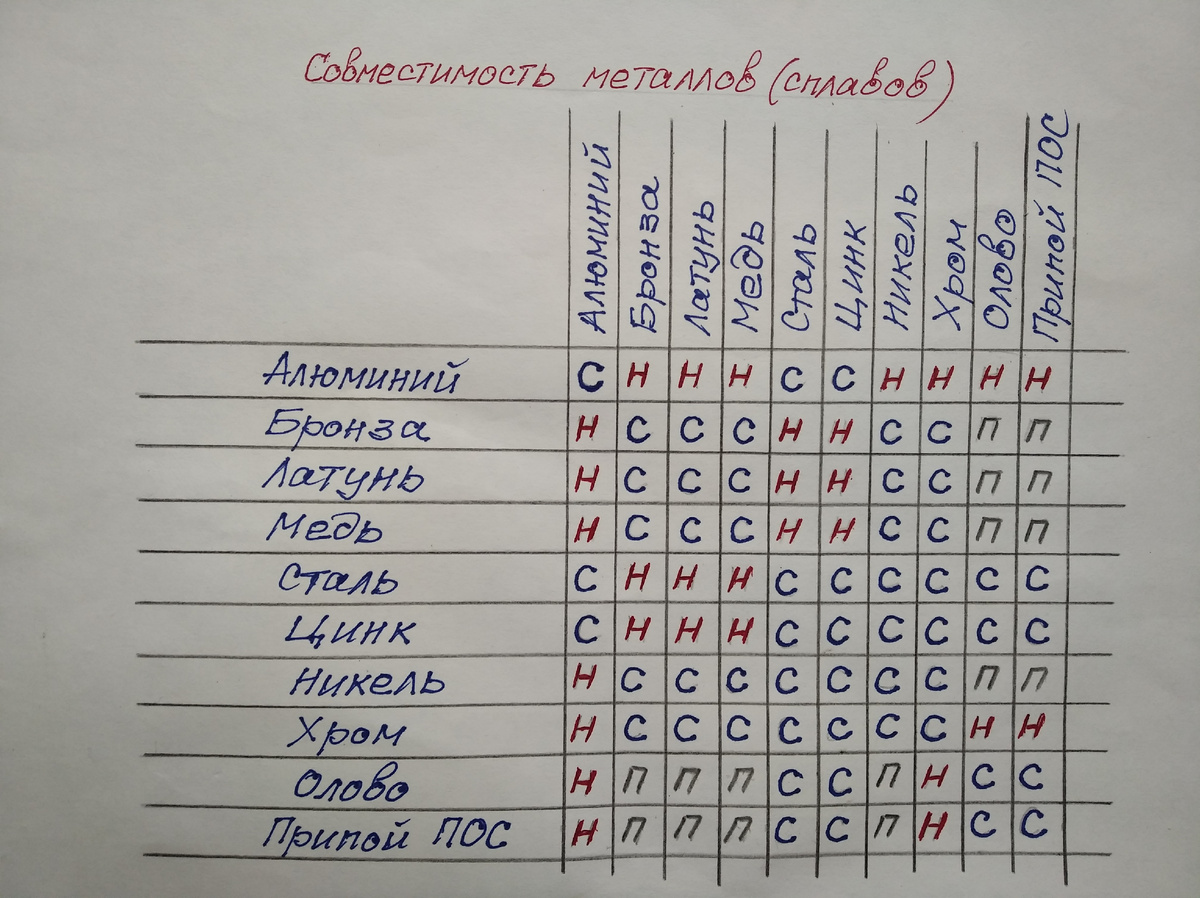 Совместимость металлов (сплавов)
Алюминий Бронза Латунь Медь Сталь Цинк Никель Хром Олово Припой ПОС
Алюминий С Н Н Н С С Н Н Н Н
Бронза Н С С С Н Н С С П П
Латунь Н С С С Н Н С С П П
Медь Н С С С Н Н С С П П
Сталь С Н Н Н С С С С С С
Цинк С Н Н Н С С С С С С
Никель Н С С С С С С С П П
Хром Н С С С С С С С Н Н
Олово Н П П П С С П Н С С
Припой ПОС Н П П П С С П Н С С